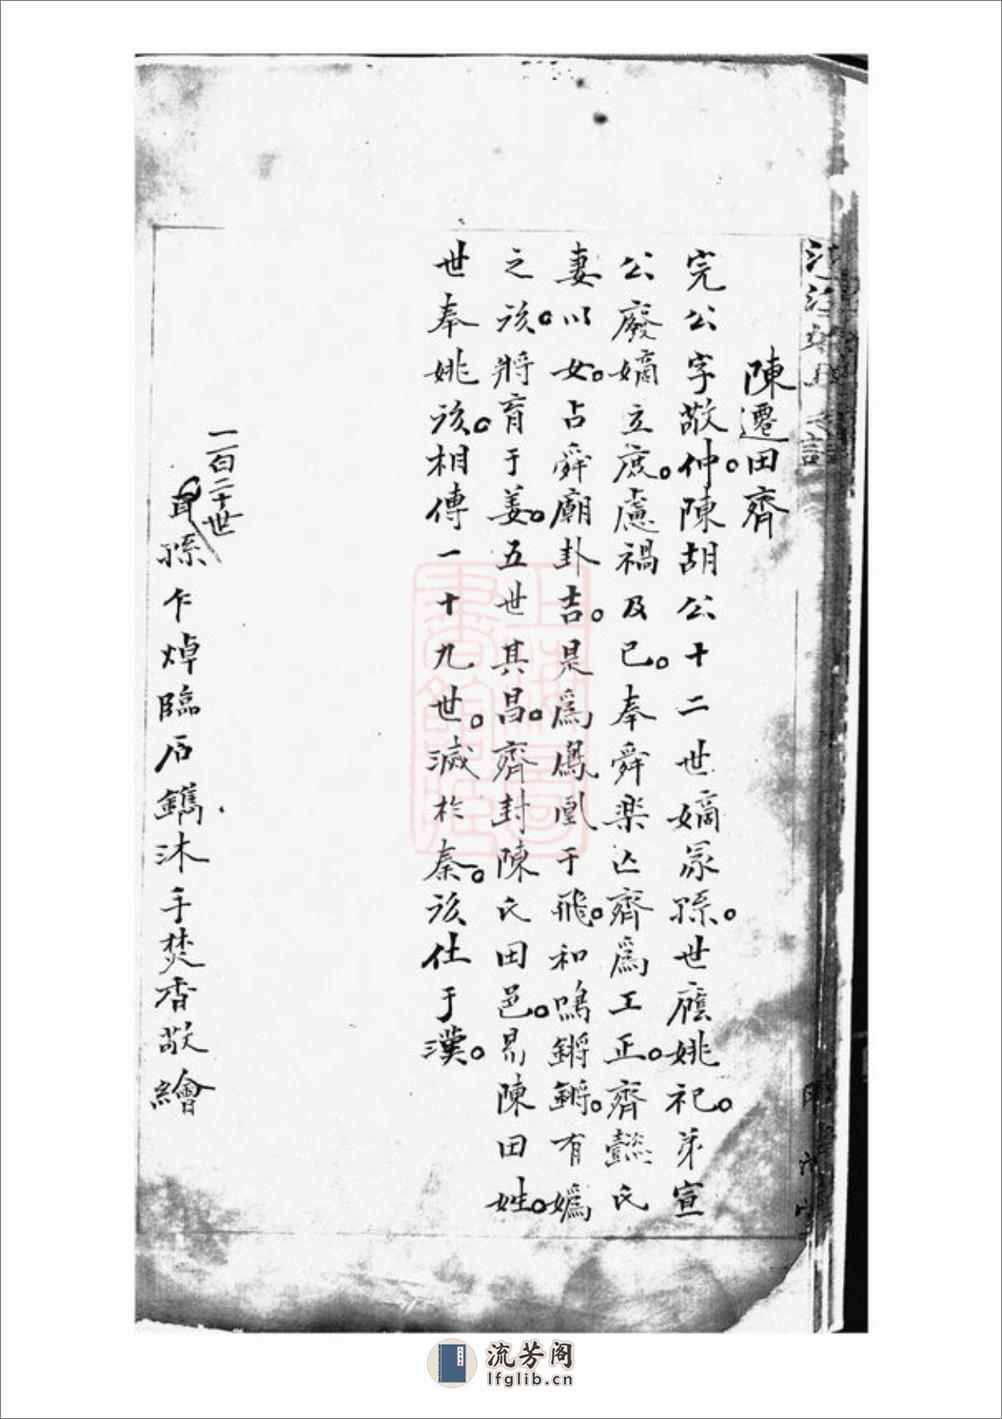 陳遷田齊
完公字敬仲。陳胡公十二世嫡冢孫。世應姚祀。弟宣
公廢嫡立庶。慮禍及已。奉舜楽亾齊為工正。齊懿氏
妻以女。占舜廟卦吉。是為鳳凰于飛。和鳴鏘鏘。有嬀
之。將育于姜。五世其昌。齊封陳氏田邑。易陳田姓。
世奉姚。相傳一十九世。滅於秦。仕于漢。
一百二十世
孫乍焯臨石鐫沐手焚香敬繪
流芳阁
lfglib.cn